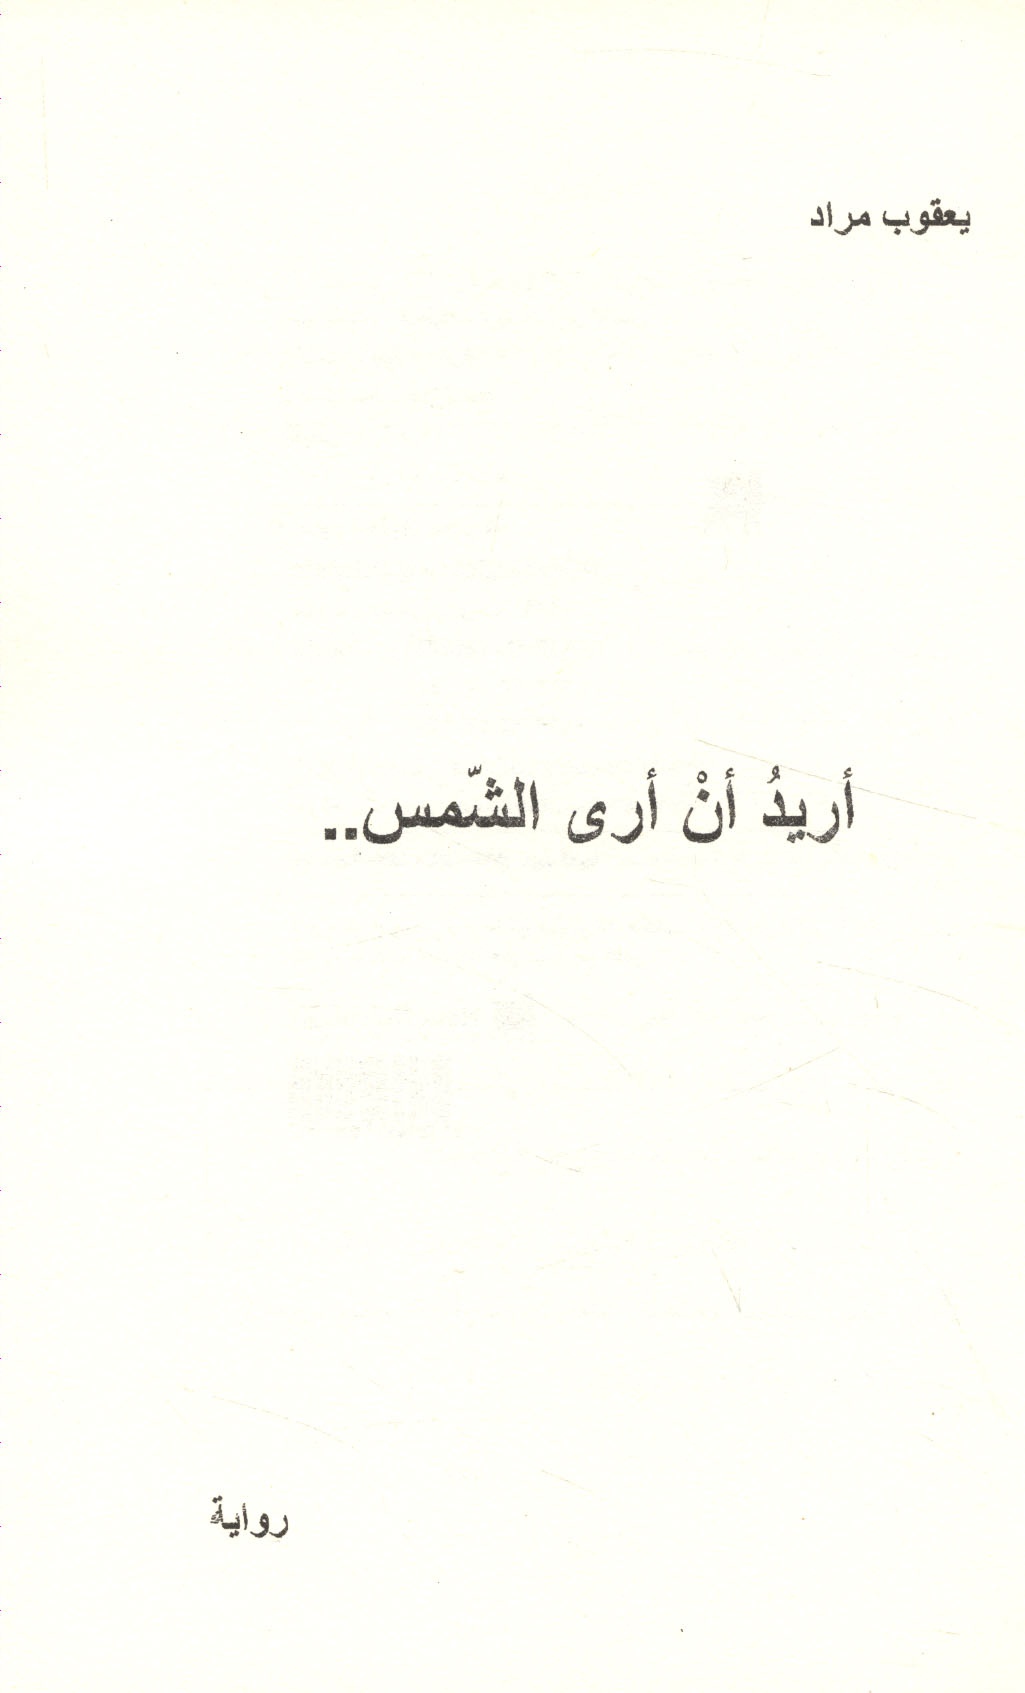 يعقوب مراد
أريدُ أنْ أرى الشّمس..
رواية